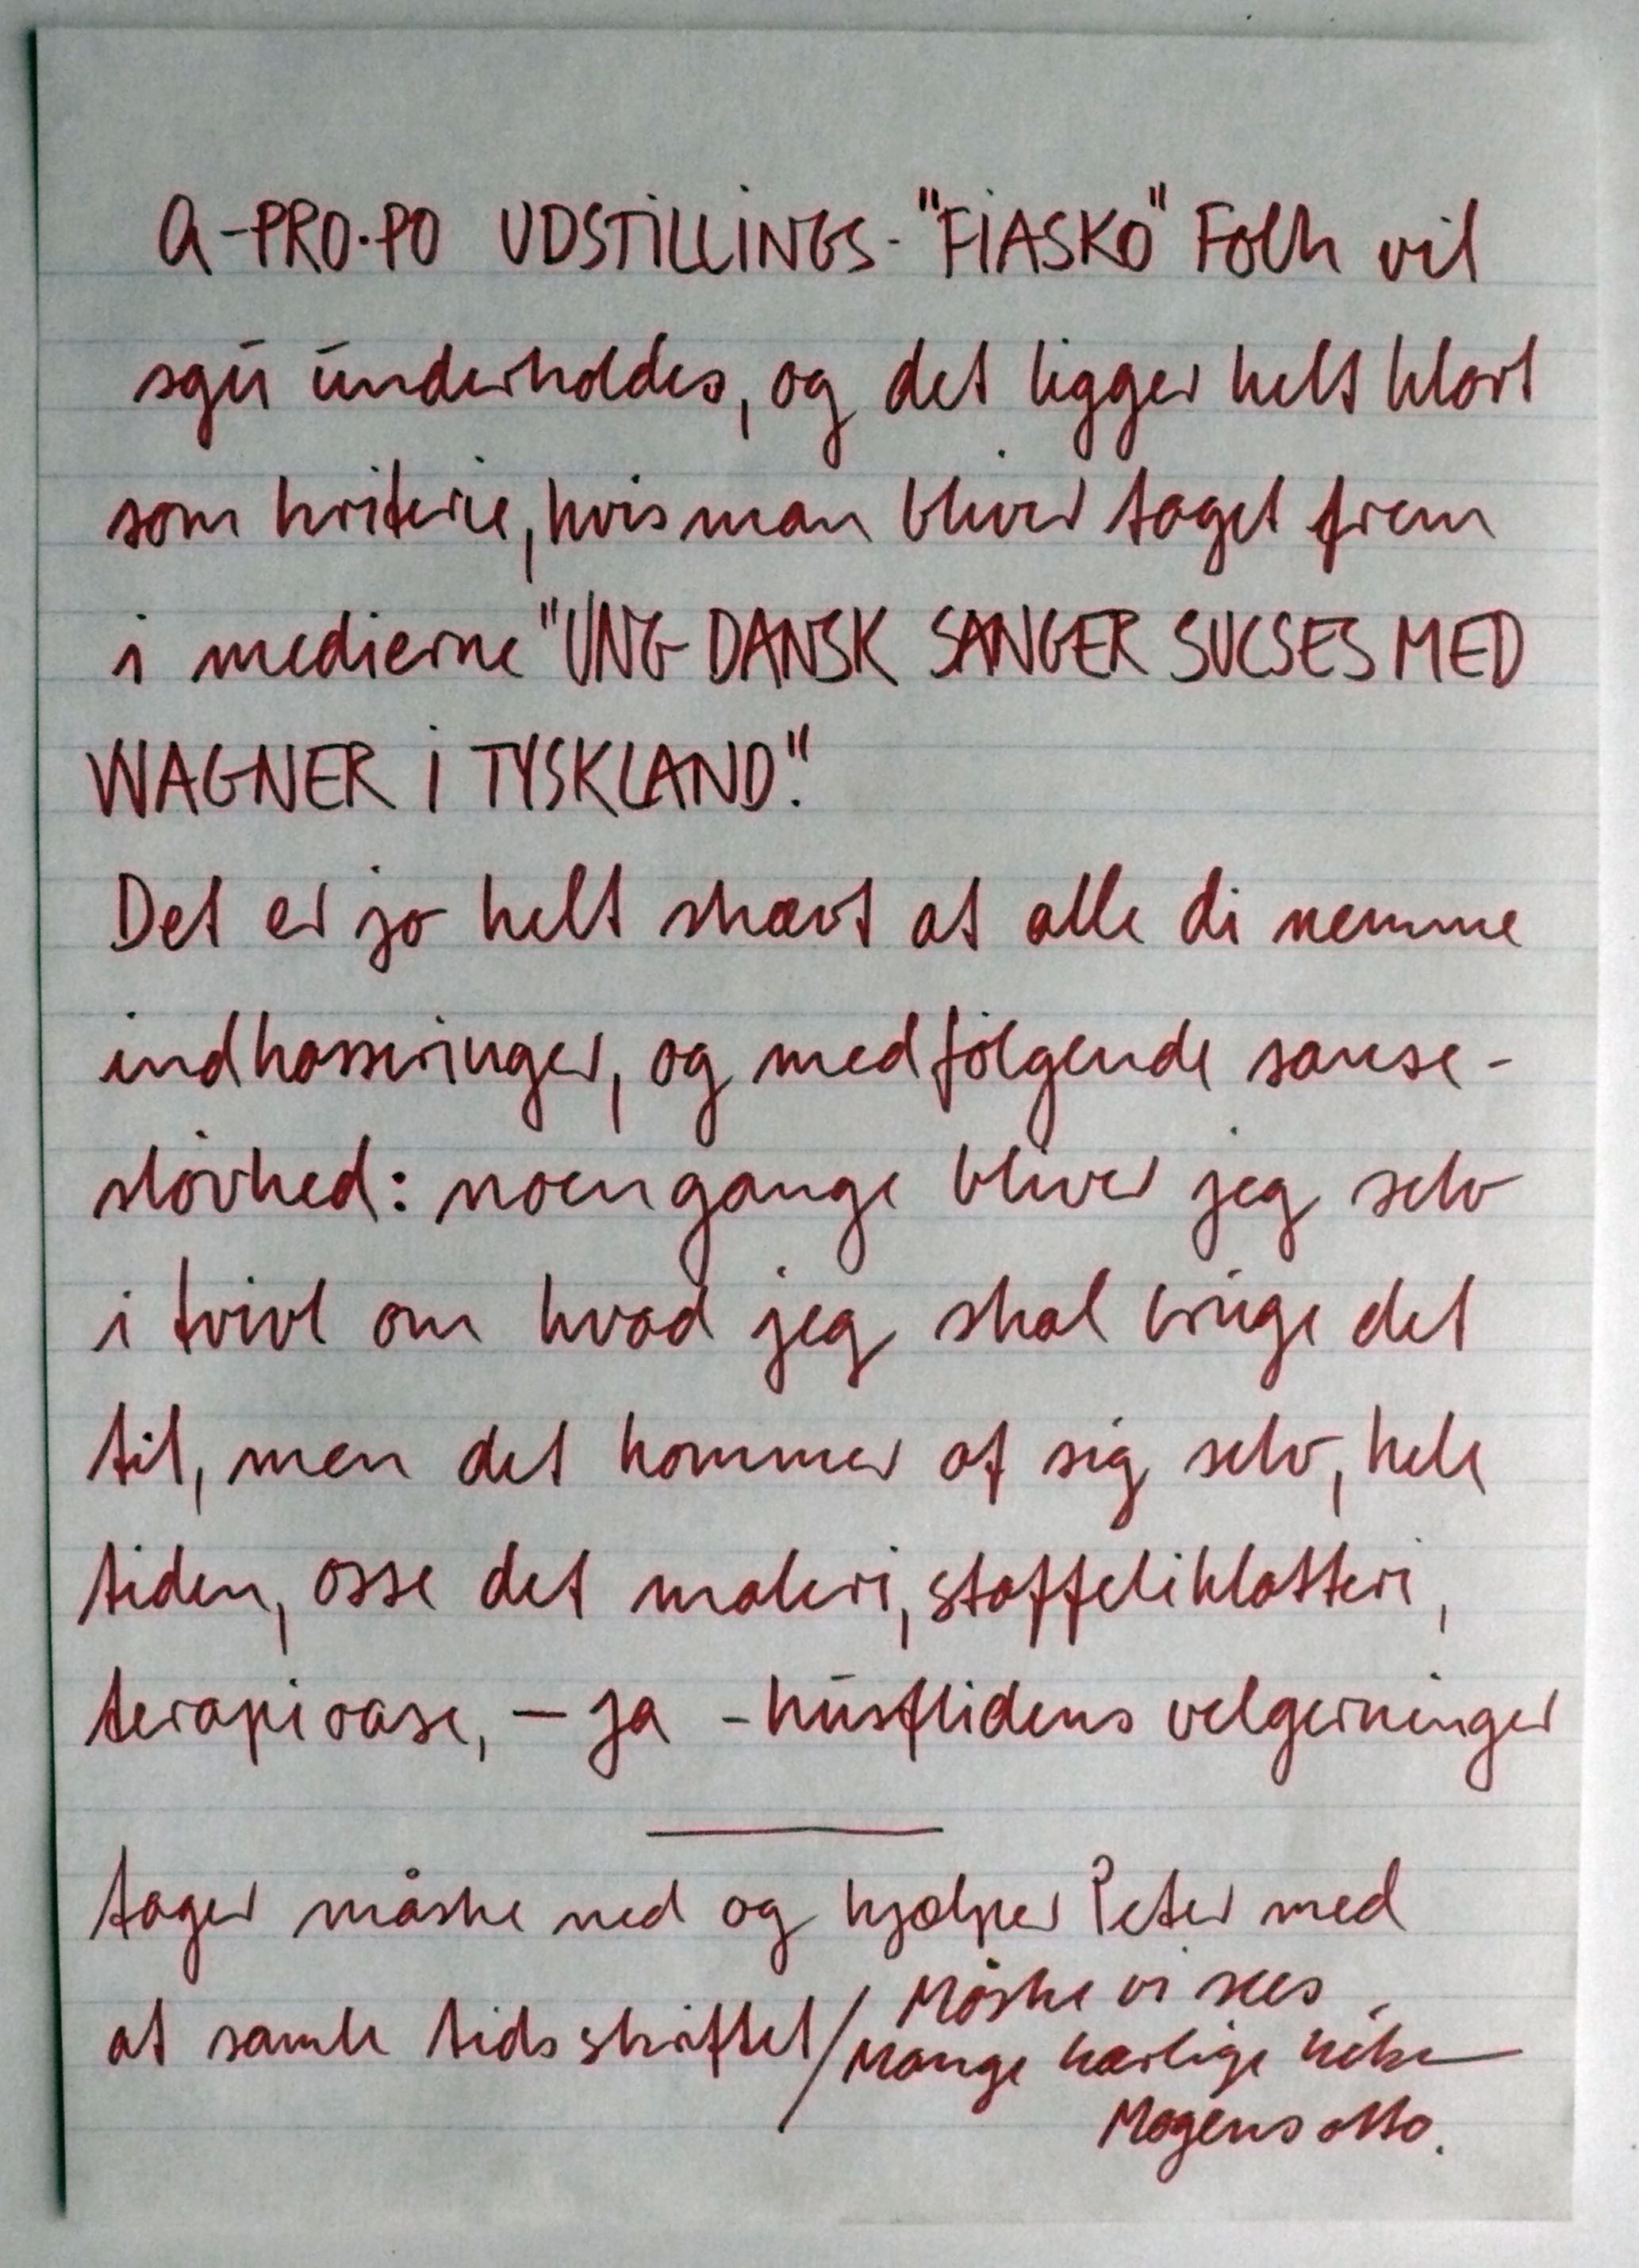 A-PRO-PO UDSTILLINGS-"FIASKO" Folk vil
sgu underholdes, og det ligger helt klart
som kriterie, hvis man bliver taget frem
i medierne "UNG DANSK SANGER SUCSES MED
WAGNER I TYSKLAND".
Det er jo helt skævt at alle di nemme
indkasseringer, og medfølgende sanse-
sløvhed: noen gange bliver jeg selv
i tvivl om hvad jeg skal bruge det
til, men det kommer af sig selv, hele
tiden, osse det maleri, staffeliklatteri,
terapi oase, – ja – husflidens velgerninger
tager måske ned og hjælper Peter med
at samle tidsskriftet/
Måske vi sees
Mange kærlige
Mogens otto.